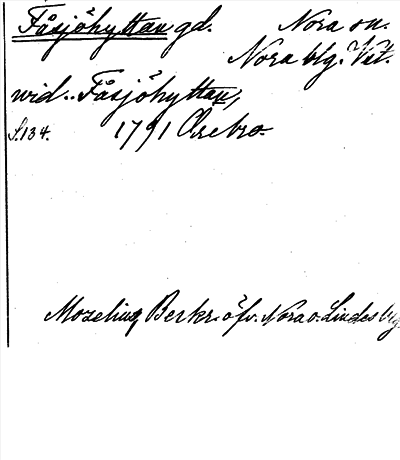 Fåsjöhyttan gd. Nora sn.
Nora blg. Vst.
wid.. Fåsjöhyttan,
S. 134. 1791 Örebro.
Moselius, Berkr. öfv. Nora o. Lindes blg.